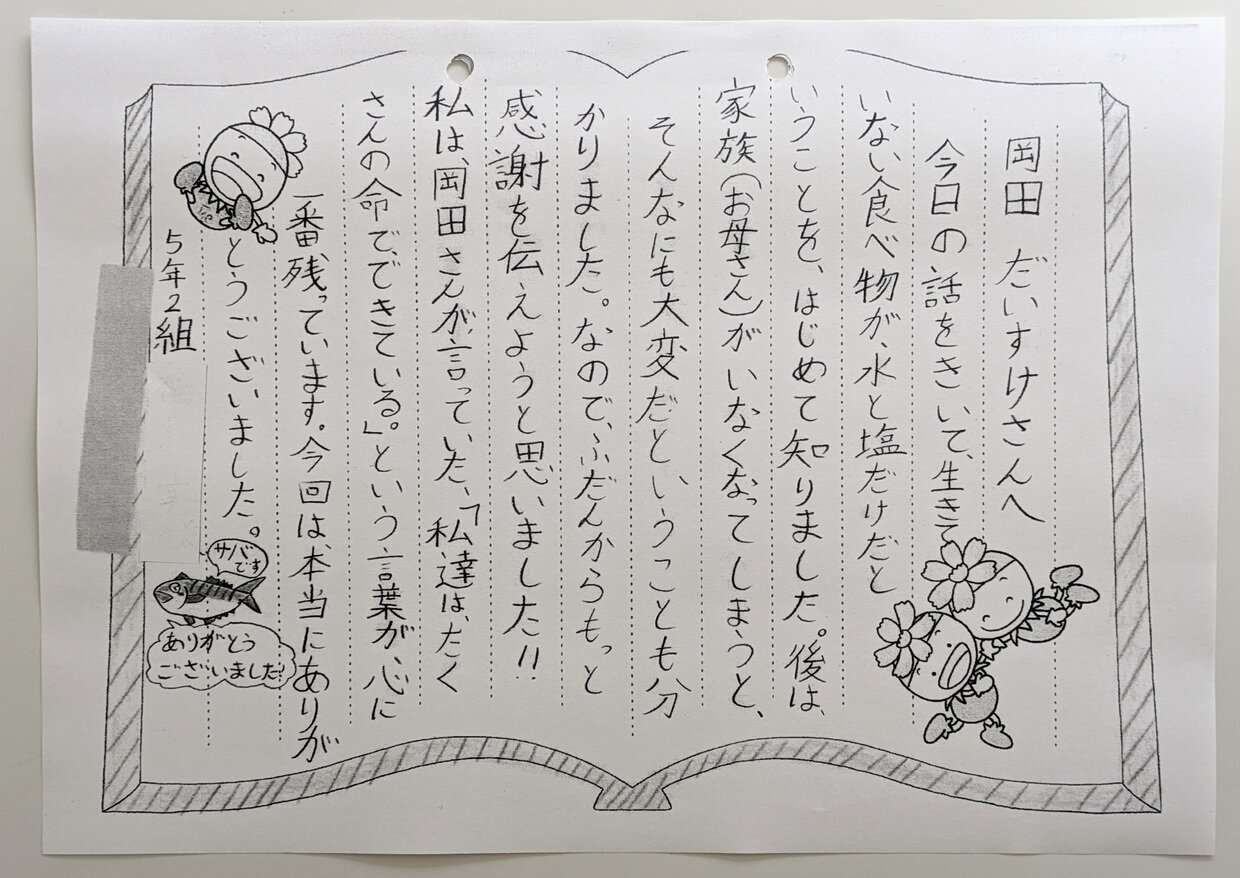 岡田 だいすけさんへ
今日の話をきいて、生きて
いない食べ物が、水と塩だけだと
いうことを、はじめて知りました。後は、
家族(お母さん)がいなくなってしまうと、
そんなにも大変だということも分
かりました。なので、ふだんからもっと
感謝を伝えようと思いました!!
私は、岡田さんが、言っていた、「私達は、たく
さんの命で、できている。」という言葉が、心に
一番残っています。今回は、本当にありが
とうございました。
5年2組
サバです
ありがとう
ございました!